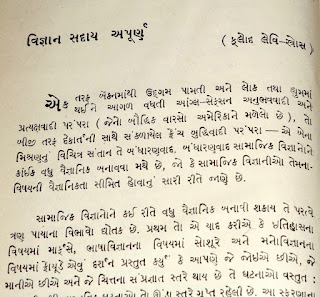 વિજ્ઞાન સદાય અપૂર્ણ
( ક્લોદ લેવિ-સ્ત્રોસ )
એક તરફ બૅકનમાંથી ઉદ્ગમ પામતી અને લૉક તથા હ્યુમમાં
થઈને આગળ વધતી આંગ્લ-સેક્સન અનુભવવાદી અને
પ્રત્યક્ષવાદી પરંપરા (જેનો બૌદ્ધિક વારસો અમેરિકાને મળેલો છે ), તો
બીજી તરફ દેકાર્તની સાથે સંકળાયેલ ફ્રેંચ બુદ્ધિવાદી પરંપરા — એ બેના
મિશ્રણનું વિચિત્ર સંતાન તે બંધારણવાદ. બંધારણવાદ સામાજિક વિજ્ઞાનોને
કાંઈક વધુ વૈજ્ઞાનિક બનાવવા મથે છે, જો કે સામાજિક વિજ્ઞાનીઓ તેમના-
વિષયની વૈજ્ઞાનિકતા સીમિત હોવાનું સારી રીતે જાણે છે.
સામાજિક વિજ્ઞાનોને કઈ રીતે વધુ વૈજ્ઞાનિક બનાવી શકાય તે પરત્વે
ત્રણ પાયાના વિભાવો દ્યોતક છે. પ્રથમ તો એ યાદ કરીએ કે ઇતિહાસના
વિષયમાં માર્ક્સે, ભાષાવિજ્ઞાનના વિષયમાં સોશૂરે અને મનોવિજ્ઞાનના
વિષયમાં ફ્રોયૂંડે એવું દર્શન પ્રસ્તુત કર્યું કે આપણે જે જોઈએ છીએ, જે
માનીએ છીએ અને જે ચિત્તના સંપ્રજ્ઞાત સ્તરે થાય છે તે ઘટનાઓ વસ્તુત :
સ્તરે ગુપ્ત રહેલી છે. આ સ્ફરણાના